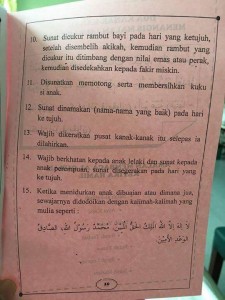 10. Sunat dicukur rambut bayi pada hari yang ketujuh,
setelah disembelih akikah, kemudian rambut yang
dicukur itu ditimbang dengan nilai emas atau perak,
kemudian disedekahkan kepada fakir miskin.
11. Disunatkan memotong serta membersihkan kuku
si anak.
12. Sunat dinamakan (nama-nama yang baik) pada hari
ke tujuh.
13. Wajib dikeratkan pusat kanak-kanak itu selepas ia
dilahirkan.
14. Wajib berkhatan kepada anak lelaki dan sunat kepada
anak perempuan, sunat disegerakan pada hari yang
ke tujuh.
15. Ketika menidurkan anak dibuaian atau dimana jua,
sewajarnya didodoikan dengan kalimah-kalimah yang
mulia seperti :
لا إله إلا الله الملك الحق المبين محمد رسول الله الصادق
الوعد الأمين